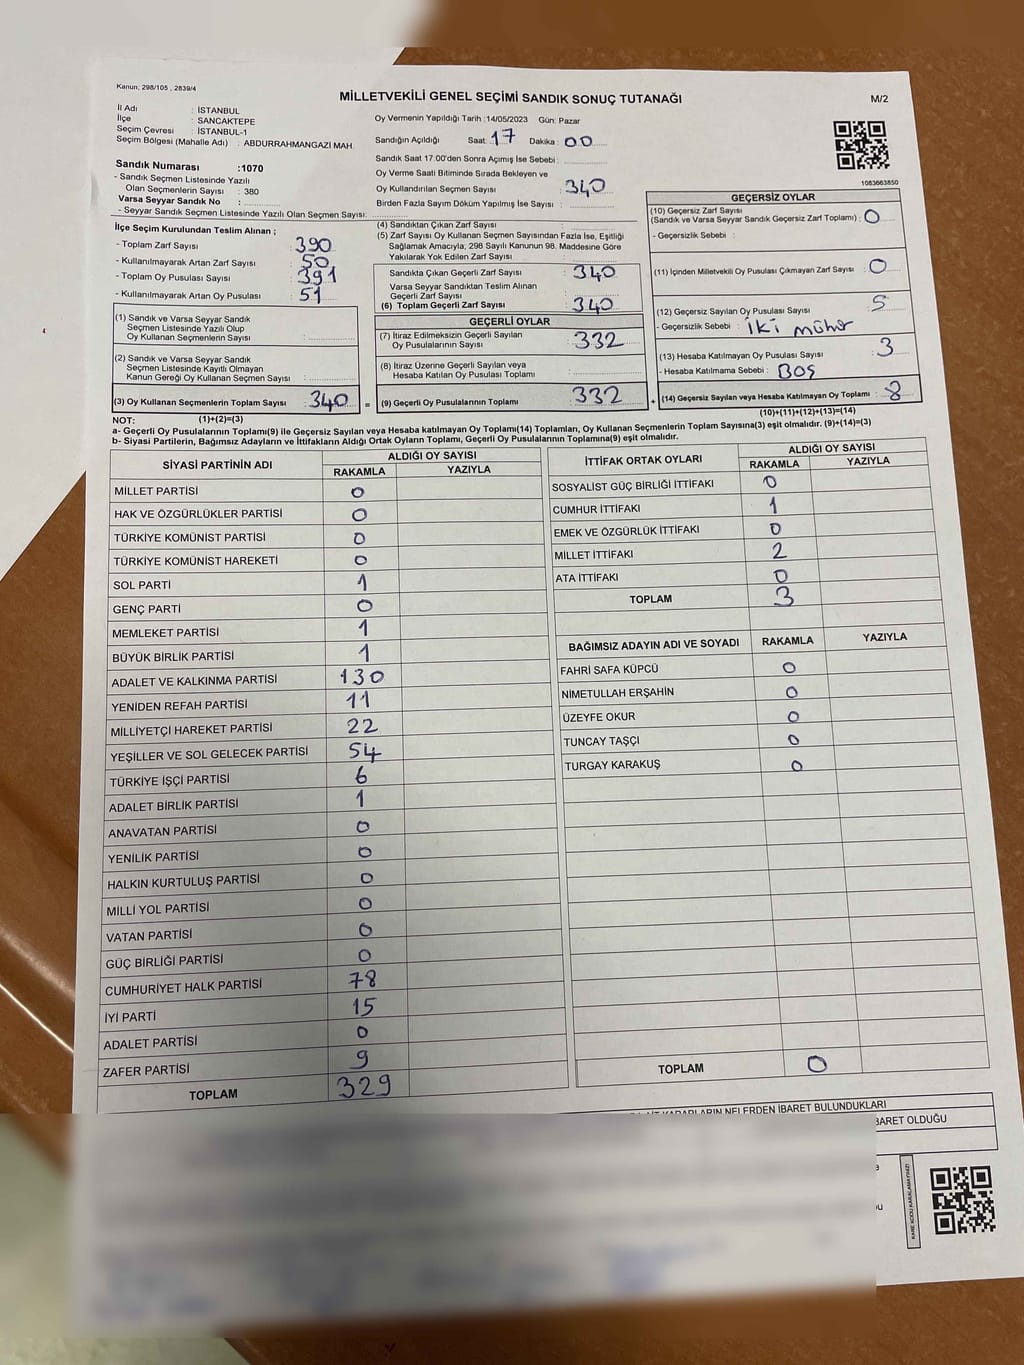 Kanun; 298/105 , 2839/4
MİLLETVEKİLİ GENEL SEÇİMİ SANDIK SONUÇ TUTANAĞI
M/2
İl Adı : İSTANBUL
İlçe : SANCAKTEPE
Seçim Çevresi : İSTANBUL-1
Seçim Bölgesi (Mahalle Adı) : ABDURRAHMANGAZİ MAH.
Sandık Numarası :1070
- Sandık Seçmen Listesinde Yazılı
Olan Seçmenlerin Sayısı : 380
Varsa Seyyar Sandık No :
- Seyyar Sandık Seçmen Listesinde Yazılı Olan Seçmen Sayısı:
Oy Vermenin Yapıldığı Tarih :14/05/2023 Gün: Pazar
Sandığın Açıldığı Saat: 17 Dakika : 00
Sandık Saat 17:00'den Sonra Açımış İse Sebebi :
Oy Verme Saati Bitiminde Sırada Bekleyen ve
Oy Kullandırılan Seçmen Sayısı : 340
Birden Fazla Sayım Döküm Yapılmış İse Sayısı :
1083663850
İlçe Seçim Kurulundan Teslim Alınan ;
- Toplam Zarf Sayısı : 390
- Kullanılmayarak Artan Zarf Sayısı : 50
- Toplam Oy Pusulası Sayısı : 391
- Kullanılmayarak Artan Oy Pusulası : 51
(1) Sandık ve Varsa Seyyar Sandık
Seçmen Listesinde Yazılı Olup
Oy Kullanan Seçmenlerin Sayısı :
(2) Sandık ve Varsa Seyyar Sandık
Seçmen Listesinde Kayıtlı Olmayan
Kanun Gereği Oy Kullanan Seçmen Sayısı :
(3) Oy Kullanan Seçmenlerin Toplam Sayısı : 340 =
(4) Sandıktan Çıkan Zarf Sayısı :
(5) Zarf Sayısı Oy Kullanan Seçmen Sayısından Fazla İse, Eşitliği
Sağlamak Amacıyla, 298 Sayılı Kanunun 98. Maddesine Göre
Yakılarak Yok Edilen Zarf Sayısı :
Sandıkta Çıkan Geçerli Zarf Sayısı : 340
Varsa Seyyar Sandıktan Teslim Alınan
Geçerli Zarf Sayısı :
(6) Toplam Geçerli Zarf Sayısı : 340
GEÇERLİ OYLAR
(7) İtiraz Edilmeksizin Geçerli Sayılan
Oy Pusulalarının Sayısı : 332
(8) İtiraz Üzerine Geçerli Sayılan veya
Hesaba Katılan Oy Pusulası Toplamı :
(9) Geçerli Oy Pusulalarının Toplamı : 332 +
GEÇERSİZ OYLAR
(10) Geçersiz Zarf Sayısı
(Sandık ve Varsa Seyyar Sandık Geçersiz Zarf Toplamı) : 0
- Geçersizlik Sebebi :
(11) İçinden Milletvekili Oy Pusulası Çıkmayan Zarf Sayısı : 0
(12) Geçersiz Sayılan Oy Pusulası Sayısı : 5
- Geçersizlik Sebebi : İki mühür
(13) Hesaba Katılmayan Oy Pusulası Sayısı : 3
- Hesaba Katılmama Sebebi : BOŞ
(14) Geçersiz Sayılan veya Hesaba Katılmayan Oy Toplamı : 8
NOT: (1)+(2)=(3) (10)+(11)+(12)+(13)=(14)
a- Geçerli Oy Pusulalarının Toplamı(9) ile Geçersiz Sayılan veya Hesaba katılmayan Oy Toplamı(14) Toplamları, Oy Kullanan Seçmenlerin Toplam Sayısına(3) eşit olmalıdır. (9)+(14)=(3)
b- Siyasi Partilerin, Bağımsız Adayların ve İttifakların Aldığı Ortak Oyların Toplamı, Geçerli Oy Pusulalarının Toplamına(9) eşit olmalıdır.
SİYASİ PARTİNİN ADI ALDIĞI OY SAYISI
RAKAMLA YAZIYLA
MİLLET PARTİSİ 0
HAK VE ÖZGÜRLÜKLER PARTİSİ 0
TÜRKİYE KOMÜNİST PARTİSİ 0
TÜRKİYE KOMÜNİST HAREKETİ 0
SOL PARTİ 1
GENÇ PARTİ 0
MEMLEKET PARTİSİ 1
BÜYÜK BİRLİK PARTİSİ 1
ADALET VE KALKINMA PARTİSİ 130
YENİDEN REFAH PARTİSİ 11
MİLLİYETÇİ HAREKET PARTİSİ 22
YEŞİLLER VE SOL GELECEK PARTİSİ 54
TÜRKİYE İŞÇİ PARTİSİ 6
ADALET BİRLİK PARTİSİ 1
ANAVATAN PARTİSİ 0
YENİLİK PARTİSİ 0
HALKIN KURTULUŞ PARTİSİ 0
MİLLİ YOL PARTİSİ 0
VATAN PARTİSİ 0
GÜÇ BİRLİĞİ PARTİSİ 0
CUMHURİYET HALK PARTİSİ 78
İYİ PARTİ 15
ADALET PARTİSİ 0
ZAFER PARTİSİ 9
TOPLAM 329
İTTİFAK ORTAK OYLARI ALDIĞI OY SAYISI
RAKAMLA YAZIYLA
SOSYALİST GÜÇ BİRLİĞİ İTTİFAKI 0
CUMHUR İTTİFAKI 1
EMEK VE ÖZGÜRLÜK İTTİFAKI 0
MİLLET İTTİFAKI 2
ATA İTTİFAKI 0
TOPLAM 3
BAĞIMSIZ ADAYIN ADI VE SOYADI RAKAMLA YAZIYLA
FAHRİ SAFA KÜPCÜ 0
NİMETULLAH ERŞAHİN 0
ÜZEYFE OKUR 0
TUNCAY TAŞÇI 0
TURGAY KARAKUŞ 0
TOPLAM 0
KARARLARIN NELERDEN İBARET BULUNDUKLARI
İBARET OLDUĞU